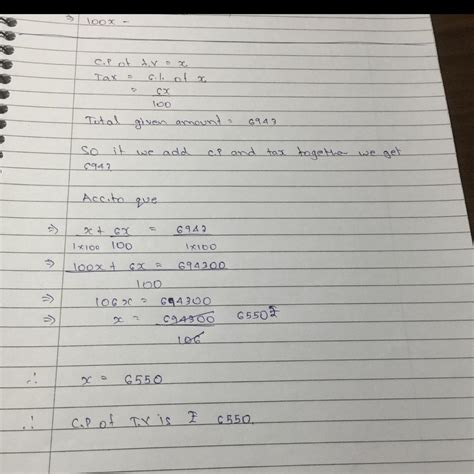 ⇒ 100x -
C.P of T.V = x
Tax = 6% of x
= 6x
100
Total given amount = 6943
So if we add C.P and tax together we get
6943
Acc.to que
⇒ x + 6x = 6943
1x100 100 1x100
⇒ 100x + 6x = 694300
100
⇒ 106x = 694300
⇒ x = 694300 6550
106
∴ x = 6550
∴ C.P of T.V is ₹ 6550.